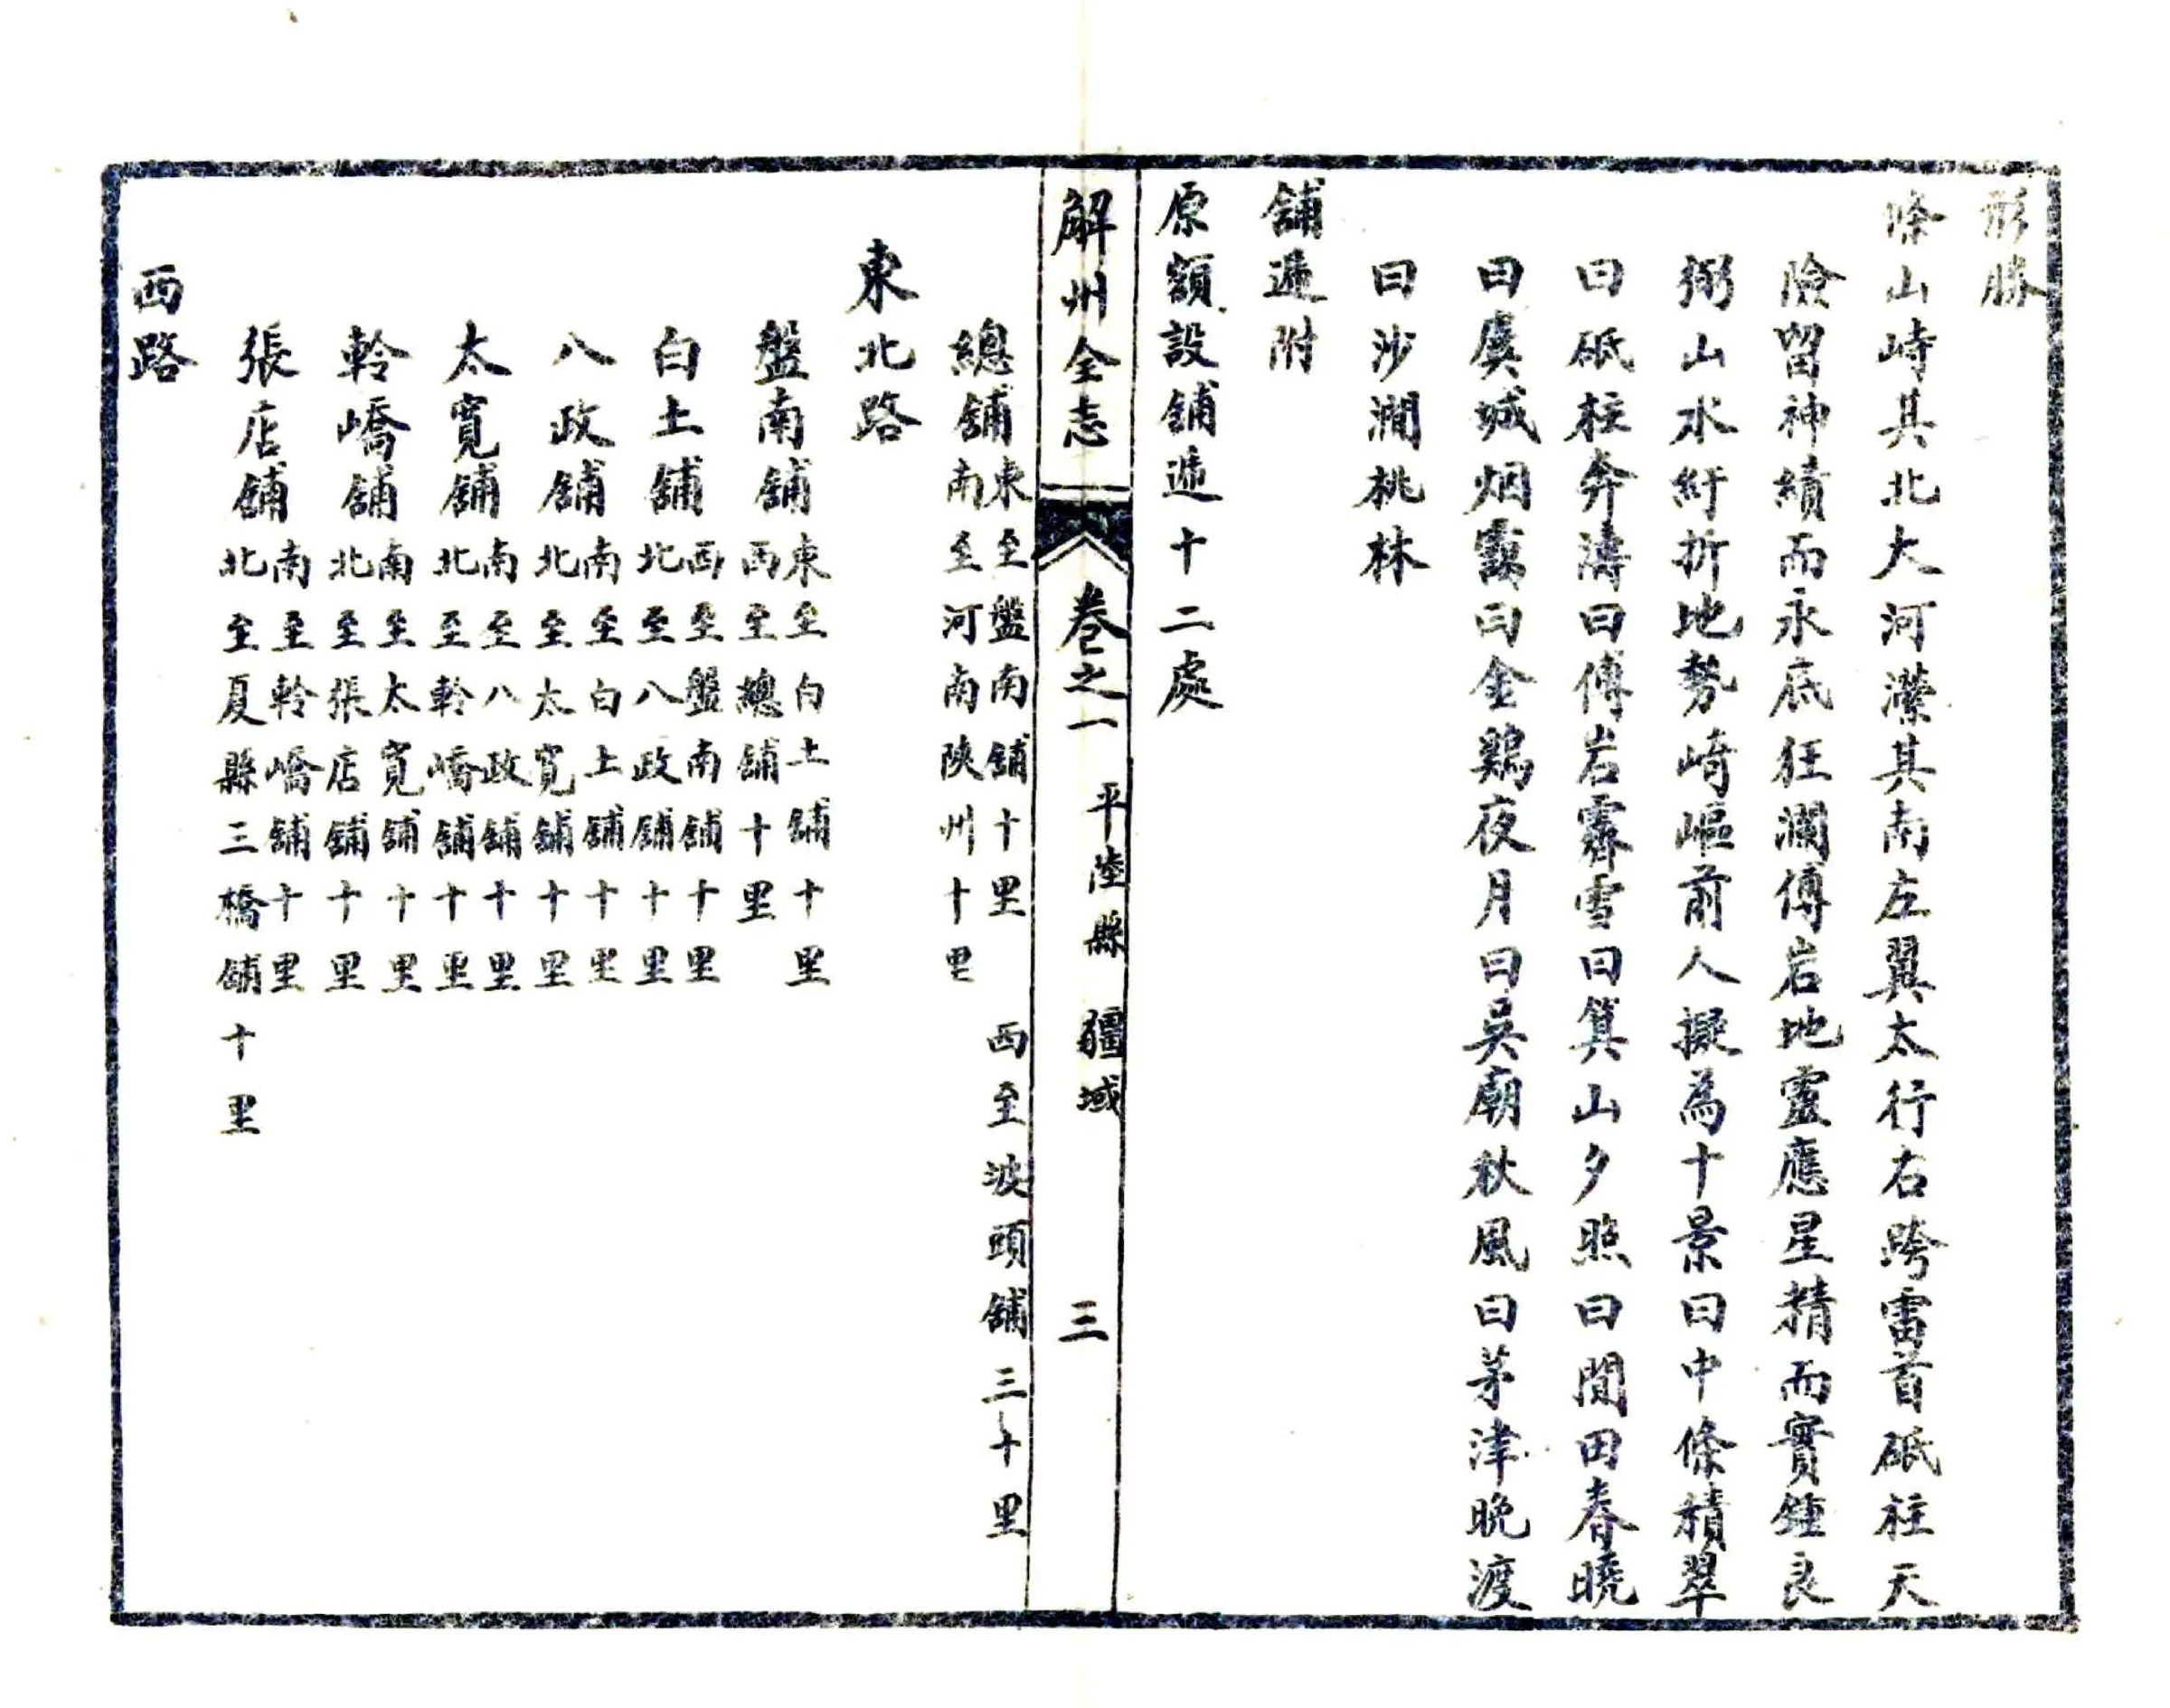 形勝
條山峙其北大河濚其南左翼太行右跨雷首砥柱天
險留神績而永底狂瀾傅岩地靈應星精而實鍾良
弼山水紆折地勢崎嶇前人擬為十景曰中條積翠
曰砥柱奔濤曰傅岩霽雪曰箕山夕照曰閒田春曉
曰虞城烟靄曰金鷄夜月曰吳廟秋風曰茅津晚渡
曰沙澗桃林
舖遞附
原額設舖遞十二處
解州全志 卷之一 平陸縣 疆域 三
總舖東至盤南舖十里 西至波頭舖三十里
南至河南陝州十里
東北路
盤南舖東至白土舖十里
西至總舖十里
白土舖西至盤南舖十里
北至八政舖十里
八政舖南至白土舖十里
北至太寬舖十里
太寬舖南至八政舖十里
北至軨嶠舖十里
軨嶠舖南至太寬舖十里
北至張店舖十里
張店舖南至軨嶠舖十里
北至夏縣三橋舖十里
西路